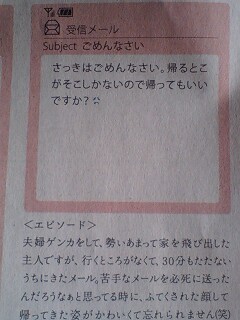 受信メール
Subject ごめんなさい
さっきはごめんなさい。帰るとこ
がそこしかないので帰ってもいい
ですか?
＜エピソード＞
夫婦ゲンカをして、勢いあまって家を飛び出した
主人ですが、行くところがなくて、30分もたたない
うちにきたメール。苦手なメールを必死に送った
んだろうなぁと思ってる時に、ふてくされた顔して
帰ってきた姿がかわいくて忘れられません(笑)